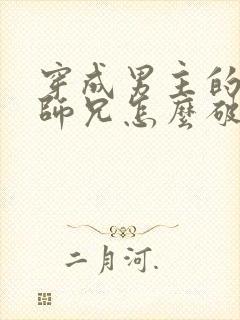 穿成男主的
師兄怎麼破
二月河.